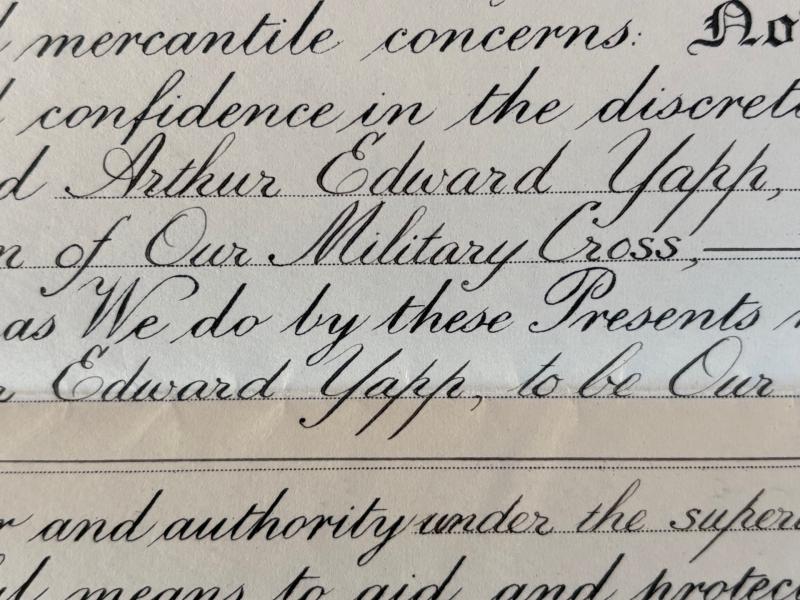 mercantile concerns: No
confidence in the discret
d Arthur Edward Yapp,
n of Our Military Cross,
as We do by these Presents
Edward Yapp, to be Our
r and authority under the super
ul means to aid and protec